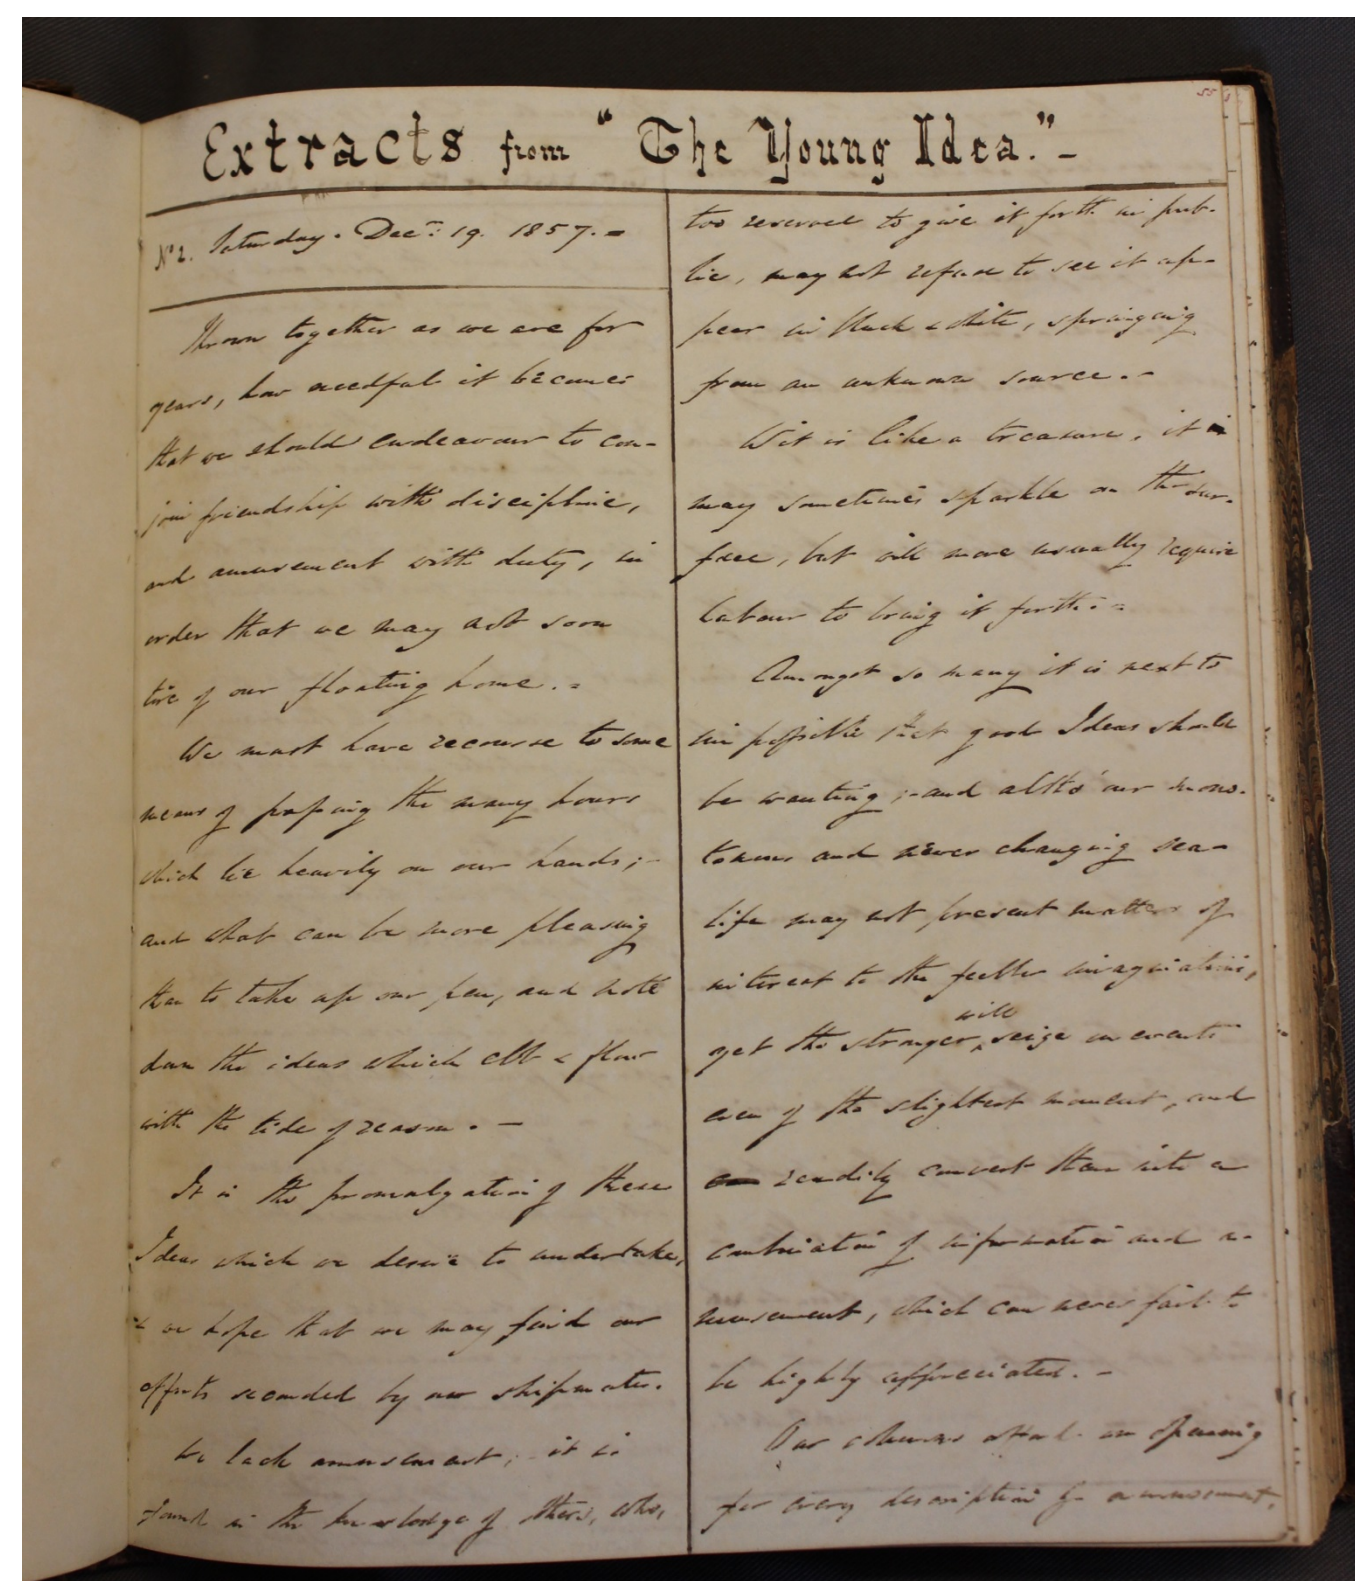 55
Extracts from "The Young Idea."-
No 2. Saturday. Decr. 19. 1857.-
Thrown together as we are for
years, how needful it becomes
that we should endeavour to con-
join friendship with discipline,
and amusement with duty, in
order that we may not soon
tire of our floating home.-
We must have recourse to some
means of passing the many hours
which lie heavily on our hands;-
and what can be more pleasing
than to take up our pen, and note
down the ideas which ebb & flow
with the tide of reason.-
It is the promulgation of these
Ideas which we desire to undertake,
& we hope that we may find our
efforts seconded by our shipmates.
We lack amusement; it is
found in the knowledge of others, who,
too reserved to give it forth in pub-
lic, may not refuse to see it ap-
pear in black & white, springing
from an unknown source.-
Wit is like a treasure, it
may sometimes sparkle on the sur-
face, but will more usually require
labour to bring it forth.-
Amongst so many it is next to
impossible that good Ideas should
be wanting;-and altho' our mono-
tonous and never changing sea-
life may not present matter of
interest to the feebler imaginations,
yet the stronger will seize on events
even of the slightest moment, and
readily convert them into a
combination of information and a-
musement, which can never fail to
be highly appreciated.-
Our columns afford an opening
for every description of amusement,